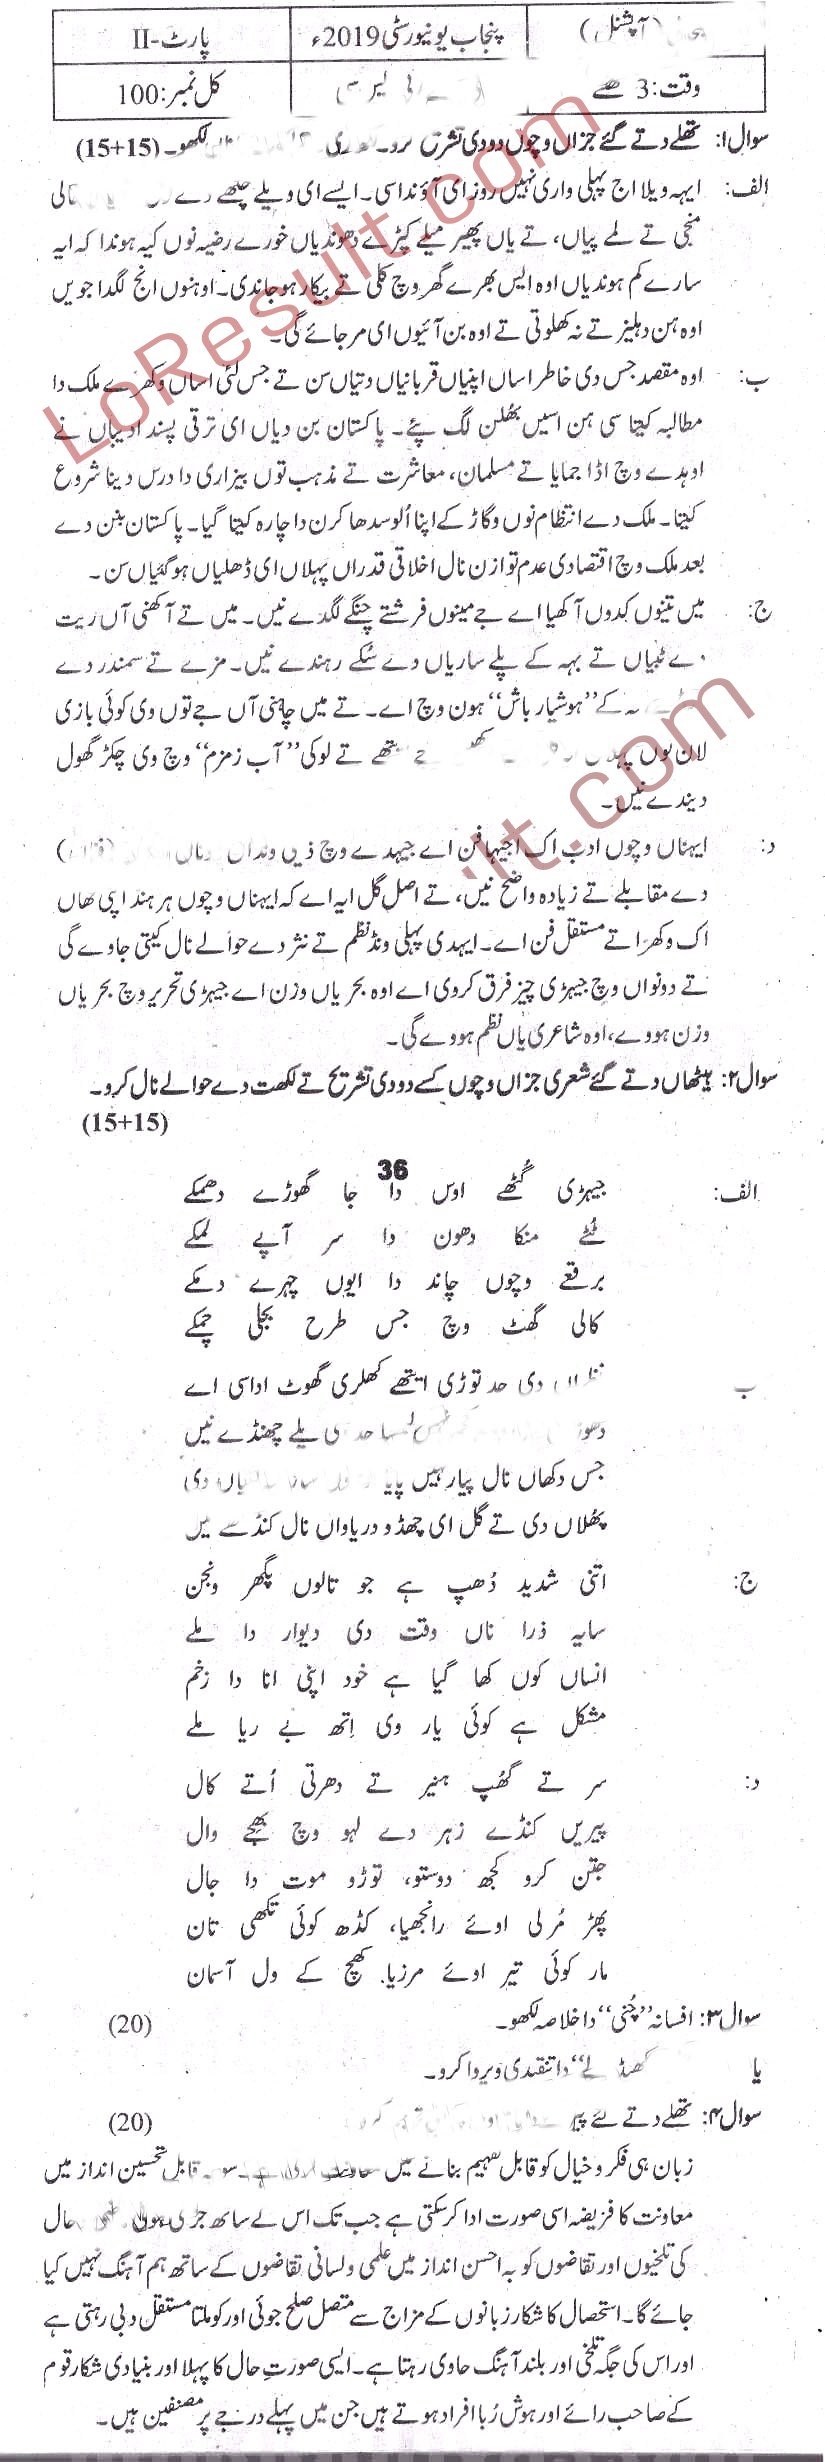 (آپشنل) پنجاب یونیورسٹی 2019ء پارٹ-II
وقت: 3 گھنٹے کل نمبر: 100
سوال ۱: تھلے دتے گئے جزاں وچوں دو دی تشریح کرو۔ لکھو۔ (15+15)
الف: ایہہ ویلا اج پہلی واری نہیں روز ای آؤندا سی۔ ایسے ای ویلے چٹھے دے
منجی تے لمے پیاں، تے یاں پھیر میلے کپڑے دھوندیاں خورے رضیہ نوں کیہ ہوندا کہ ایہ
سارے کم ہوندیاں اوہ ایس بھرے گھر وچ کلی تے بیکار ہو جاندی۔ اوہنوں انج لگدا جویں
اوہ ہن دہلیز تے نہ کھلوتی تے اوہ بن آئیوں ای مر جائے گی۔
ب: اوہ مقصد جس دی خاطر اساں اپنیاں قربانیاں دتیاں سن تے جس لئی اساں وکھرے ملک دا
مطالبہ کیتا سی ہن اسیں بھلن لگ پئے۔ پاکستان بن دیاں ای ترقی پسند ادیباں نے
اوہدے وچ اڈا جمایا تے مسلمان، معاشرت تے مذہب توں بیزاری دا درس دینا شروع
کیتا۔ ملک دے انتظام نوں وگاڑ کے اپنا اُلو سدھا کرن دا چارہ کیتا گیا۔ پاکستان بنن دے
بعد ملک وچ اقتصادی عدم توازن نال اخلاقی قدراں پہلاں ای ڈھلیاں ہو گئیاں سن۔
ج: میں تینوں کدوں آکھیا اے جے مینوں فرشتے چنگے لگدے نیں۔ میں تے آکھنی آں ریت
دے ٹبیاں تے بہہ کے پلے ساریاں دے سُکے رہندے نیں۔ مزے تے سمندر دے
کے "ہوشیار باش" ہون وچ اے۔ تے میں چاہنی آں جے توں وی کوئی بازی
لان توں تے لوکی "آب زمزم" وچ وی چکڑ گھول
دیندے نیں۔
د: ایہناں وچوں ادب اک اجیہا فن اے جیہدے وچ
دے مقابلے تے زیادہ واضح نیں، تے اصل گل ایہ اے کہ ایہناں وچوں ہر ہند اپنی تھاں
اک وکھرا تے مستقل فن اے۔ ایہدی پہلی ونڈ نظم تے نثر دے حوالے نال کیتی جاوے گی
تے دونواں وچ جیہڑی چیز فرق کردی اے اوہ بحر یاں وزن اے جیہڑی تحریر وچ بحر یاں
وزن ہووے، اوہ شاعری یاں نظم ہووے گی۔
سوال ۲: ہیٹھاں دتے گئے شعری جزاں وچوں کسے دو دی تشریح تے لکھت دے حوالے نال کرو۔
(15+15)
36
الف: جیہڑی گُٹھے اوس دا جا گھوڑے دھمکے
ٹُٹے منکا دھون دا سر آپے لمکے
برقعے وچوں چاند دا ایوں چہرے دمکے
کالی گھٹ وچ جس طرح بجلی چمکے
ب نظراں دی حد توڑی ایتھے کھلری گھوٹ اداسی اے
پلے چھنڈے نیں
جس دکھاں نال پیار نہیں دی
پھلاں دی تے گل ای چھڈو دریاواں نال کنڈے نیں
ج: اتنی شدید دُھپ ہے جو تالوں پگھر ونجن
سایہ ذرا ناں وقت دی دیوار دا ملے
انساں کوں کھا گیا ہے خود اپنی انا دا زخم
مشکل ہے کوئی یار وی اِتھ بے ریا ملے
د: سر تے گھُپ ہنیر تے دھرتی اُتے کال
پیریں کنڈے زہر دے لہو وچ بھجے وال
جتن کرو کجھ دوستو، توڑو موت دا جال
پھڑ مُرلی اوئے رانجھیا، کڈھ کوئی تکھی تان
مار کوئی تیر اوئے مرزیا۔ کھچ کے ول آسمان
سوال ۳: افسانہ "چُنی" دا خلاصہ لکھو۔ (20)
یا " دا تنقیدی ویروا کرو۔
سوال ۴: تھلے دتے (20)
زبان ہی فکر و خیال کو قابل تفہیم بنانے میں قابل تحسین انداز میں
معاونت کا فریضہ اسی صورت ادا کر سکتی ہے جب تک اس کے ساتھ جڑی ہوئی حال
کی تلخیوں اور تقاضوں کو بہ احسن انداز میں علمی و لسانی تقاضوں کے ساتھ ہم آہنگ نہیں کیا
جائے گا۔ استحصال کا شکار زبانوں کے مزاج سے متصل صلح جوئی اور کوملتا مستقل دبی رہتی ہے
اور اس کی جگہ تلخی اور بلند آہنگ حاوی رہتا ہے۔ ایسی صورتِ حال کا پہلا اور بنیادی شکار قوم
کے صاحب رائے اور ہوش رُبا افراد ہوتے ہیں جن میں پہلے درجے پر مصنفین ہیں۔
LoResult.com